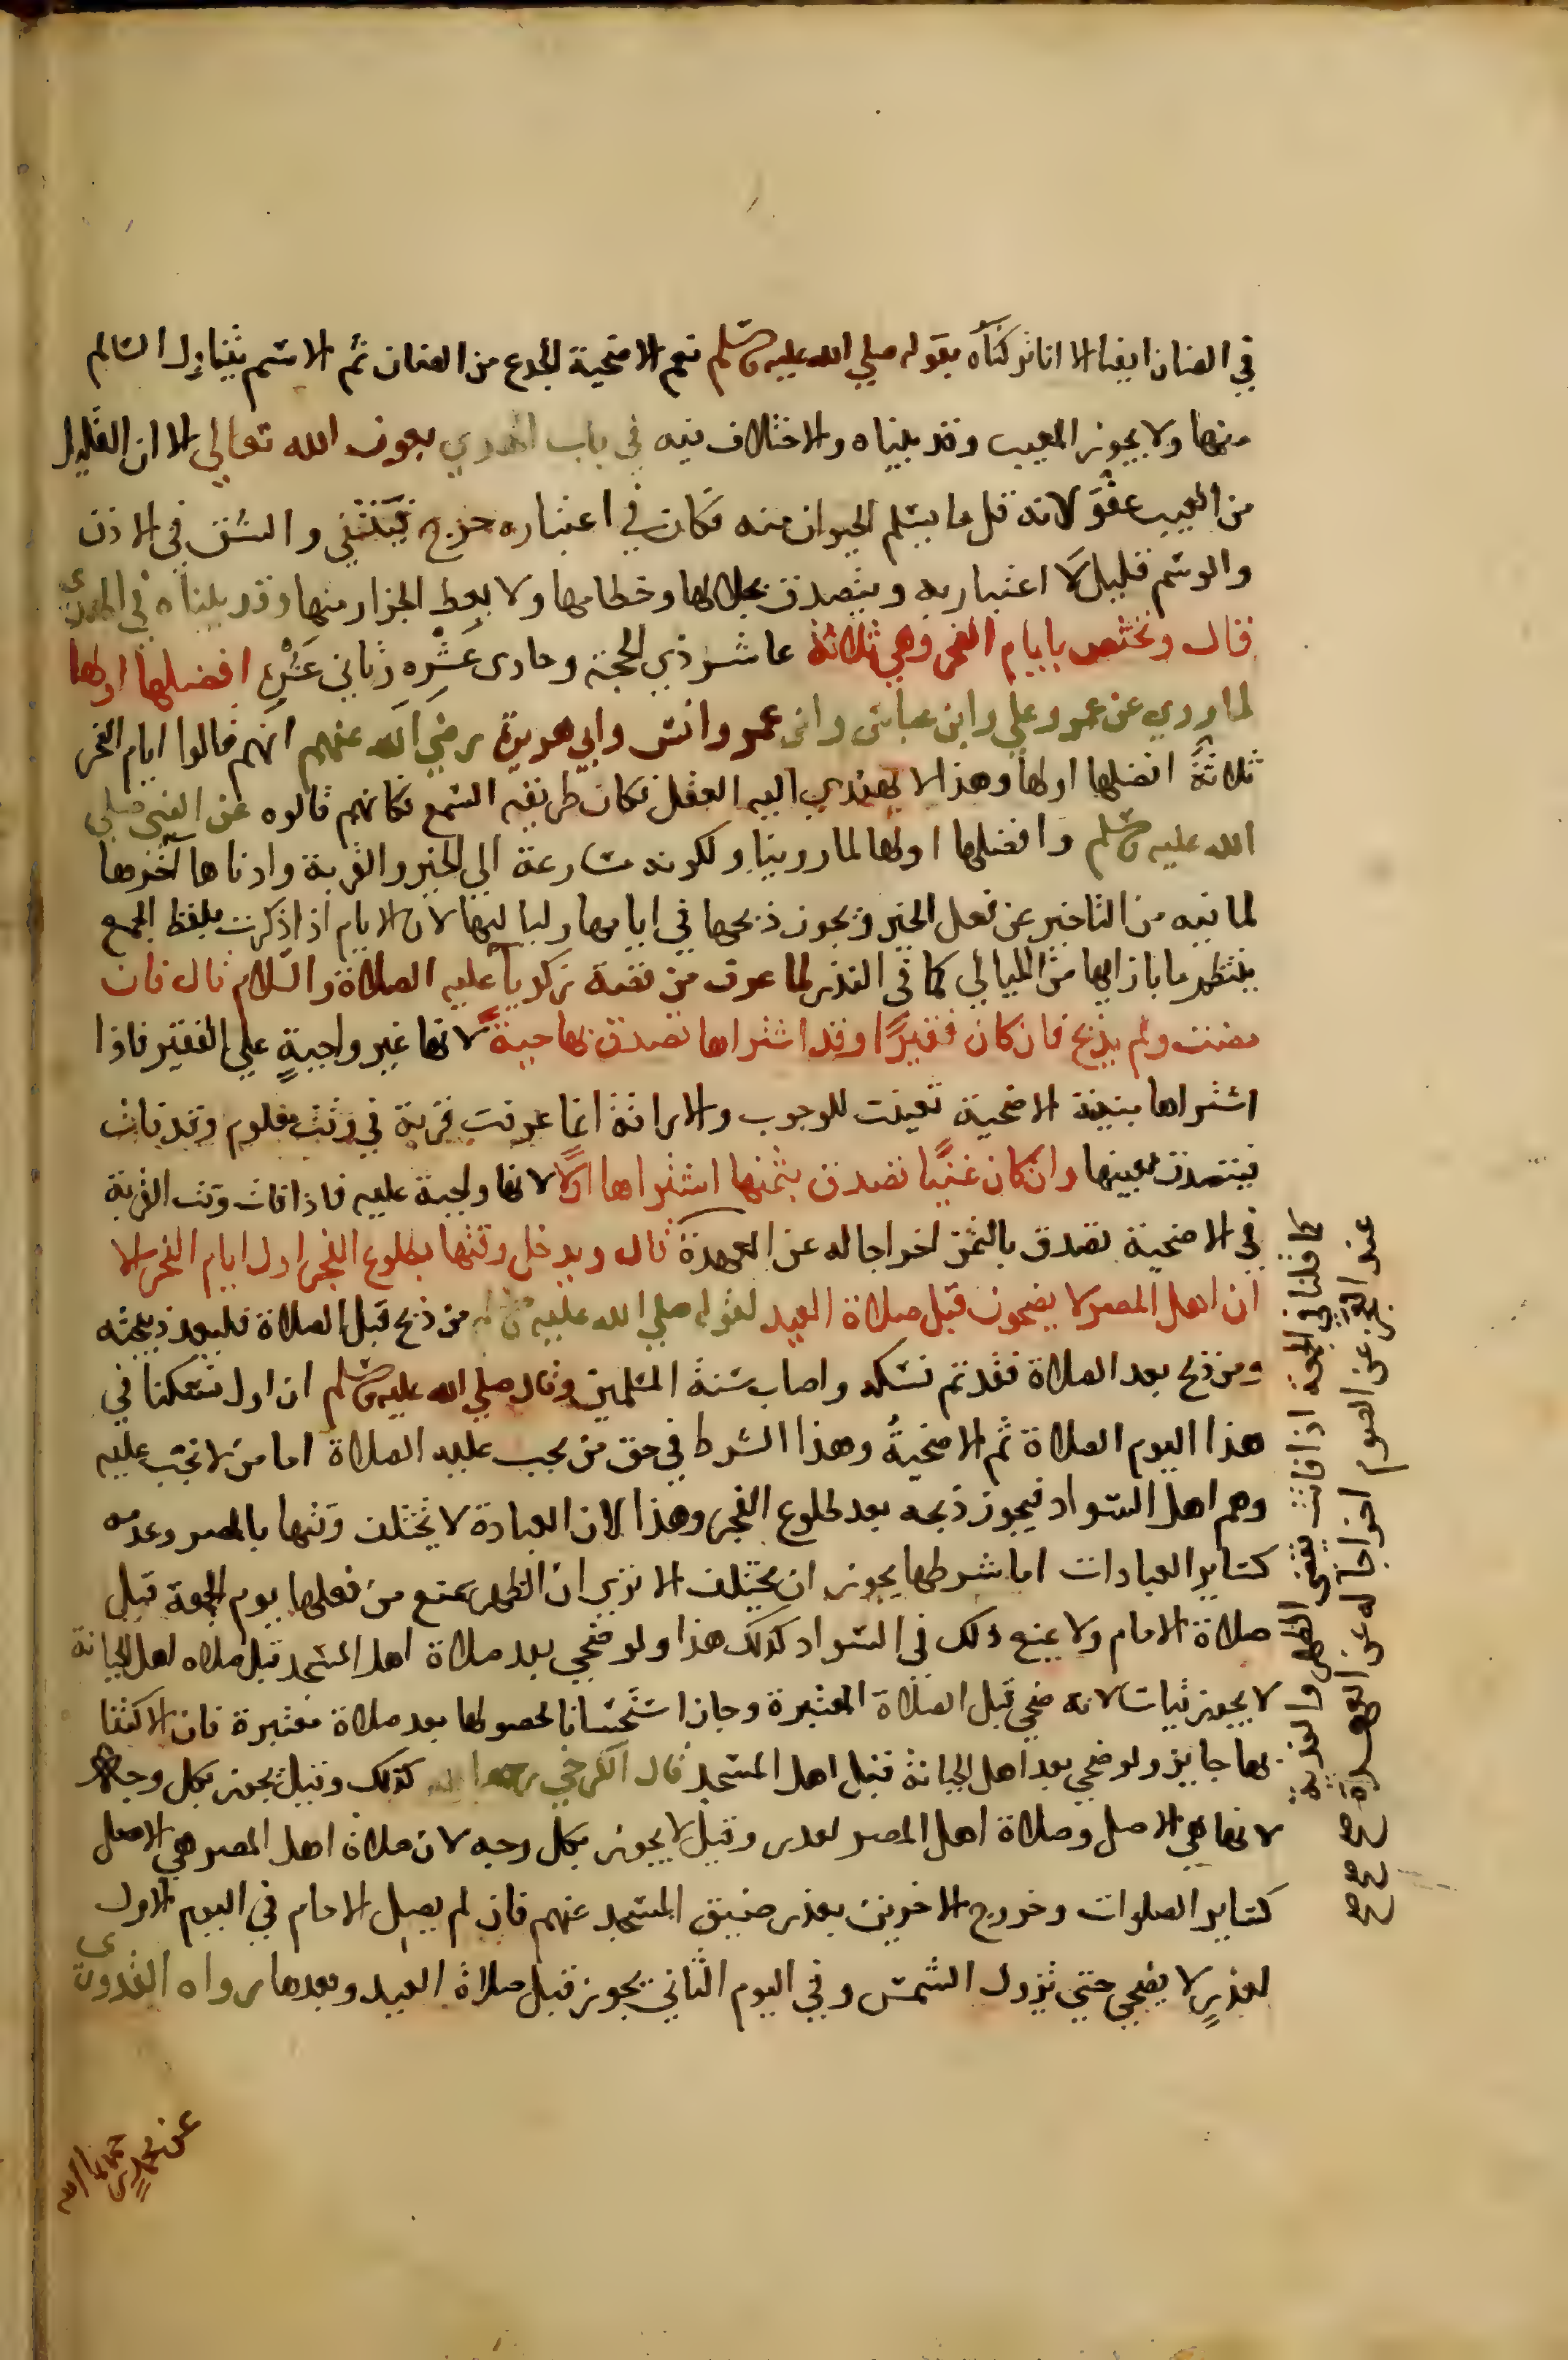 في الضان ايضا الا انا تركناه بقوله صلي الله عليه وسلم نعم الاضحية الجدع من الضان ثم الاسم يتناول السالم
منها ولا يجوز المعيب وقد بيناه والاختلاف فيه في باب الهدي بعون الله تعالي الا ان القليل
من العيب عفو لانه قل ما يسلم الحيوان منه فكان في اعتباره حرج فينتفي والشق في الاذن
والوسم قليل لا اعتبار به ويتصدق بجلالها وخطامها ولا يعط الجزار منها وقد بيناه في الهدي
قال وتختص بايام النحر وهي ثلاثة عاشر ذي الحجة وحادي عشره وثاني عشره افضلها اولها
لما روي عن عمر وعلي وابن عباس وابن عمر وانس وابي هريرة رضي الله عنهم انهم قالوا ايام النحر
ثلاثة افضلها اولها وهذا لا يهتدي اليه العقل فكان طريقه السمع فكانهم قالوه عن النبي صلي
الله عليه وسلم وافضلها اولها لما روينا ولكونه مسارعة الي الخير والقربة وادناها آخرها
لما فيه من التاخير عن فعل الخير ويجوز ذبحها في ايامها ولياليها لان الايام اذا ذكرت بلفظ الجمع
ينتظم ما بازايها من الليالي كما في النذر لما عرف من قصة زكريا عليه الصلاة والسلام قال فان
مضت ولم يذبح فان كان فقيرا وقد اشتراها تصدق بها حية لانها غير واجبة علي الفقير فاذا
اشتراها بنية الاضحية تعينت للوجوب والاراقة انما عرفت قربة في وقت معلوم وقد فات
فيتصدق بعينها وان كان غنيا تصدق بثمنها اشتراها اولا لانها واجبة عليه فاذا فات وقت القربة
في الاضحية تصدق بالثمن اخراجا له عن العهدة قال ويدخل وقتها بطلوع الفجر اول ايام النحر الا
ان اهل المصر لا يضحون قبل صلاة العيد لقوله صلي الله عليه وسلم من ذبح قبل الصلاة فليعد ذبيحته
ومن ذبح بعد الصلاة فقد تم نسكه واصاب سنة المسلمين وقال صلي الله عليه وسلم ان اول نسكنا في
هذا اليوم الصلاة ثم الاضحية وهذا الشرط في حق من يجب عليه الصلاة اما من لا تجب عليه
وهم اهل السواد فيجوز ذبحه بعد طلوع الفجر وهذا لان العبادة لا يختلف وقتها بالمصر وعدمه
كساير العبادات اما شرطها يجوز ان يختلف الا تري ان الظهر يمنع من فعلها يوم الجمعة قبل
صلاة الامام ولا يمنع ذلك في السواد كذلك هذا ولو ضحي بعد صلاة اهل المسجد قبل صلاه اهل الجبانة
لا يجوز قياسا لانه ضحي قبل الصلاة المعتبرة وجاز استحسانا لحصولها بعد صلاة معتبرة فان الاكتفا
بها جايز ولو ضحي بعد اهل الجبانة قبل اهل المسجد قال الكرخي رحمه الله كذلك وقيل يجوز بكل وجه
لانها هي الاصل وصلاة اهل المصر لعذر وقيل لا يجوز بكل وجه لان صلاة اهل المصر هي الاصل
كساير الصلوات وخروج الاخرين بعذر ضيق المسجد عنهم فان لم يصل الامام في اليوم الاول
لعذر لا يضحي حتي تزول الشمس وفي اليوم الثاني يجوز قبل صلاة العيد وبعدها رواه القدوري
كما قلنا في الجمعة اذا فاتت يقضي الظهر والفدية
عند العجز عن الصوم اخراجا له عن العهدة صح صح صح
عن محمد رحمهما الله